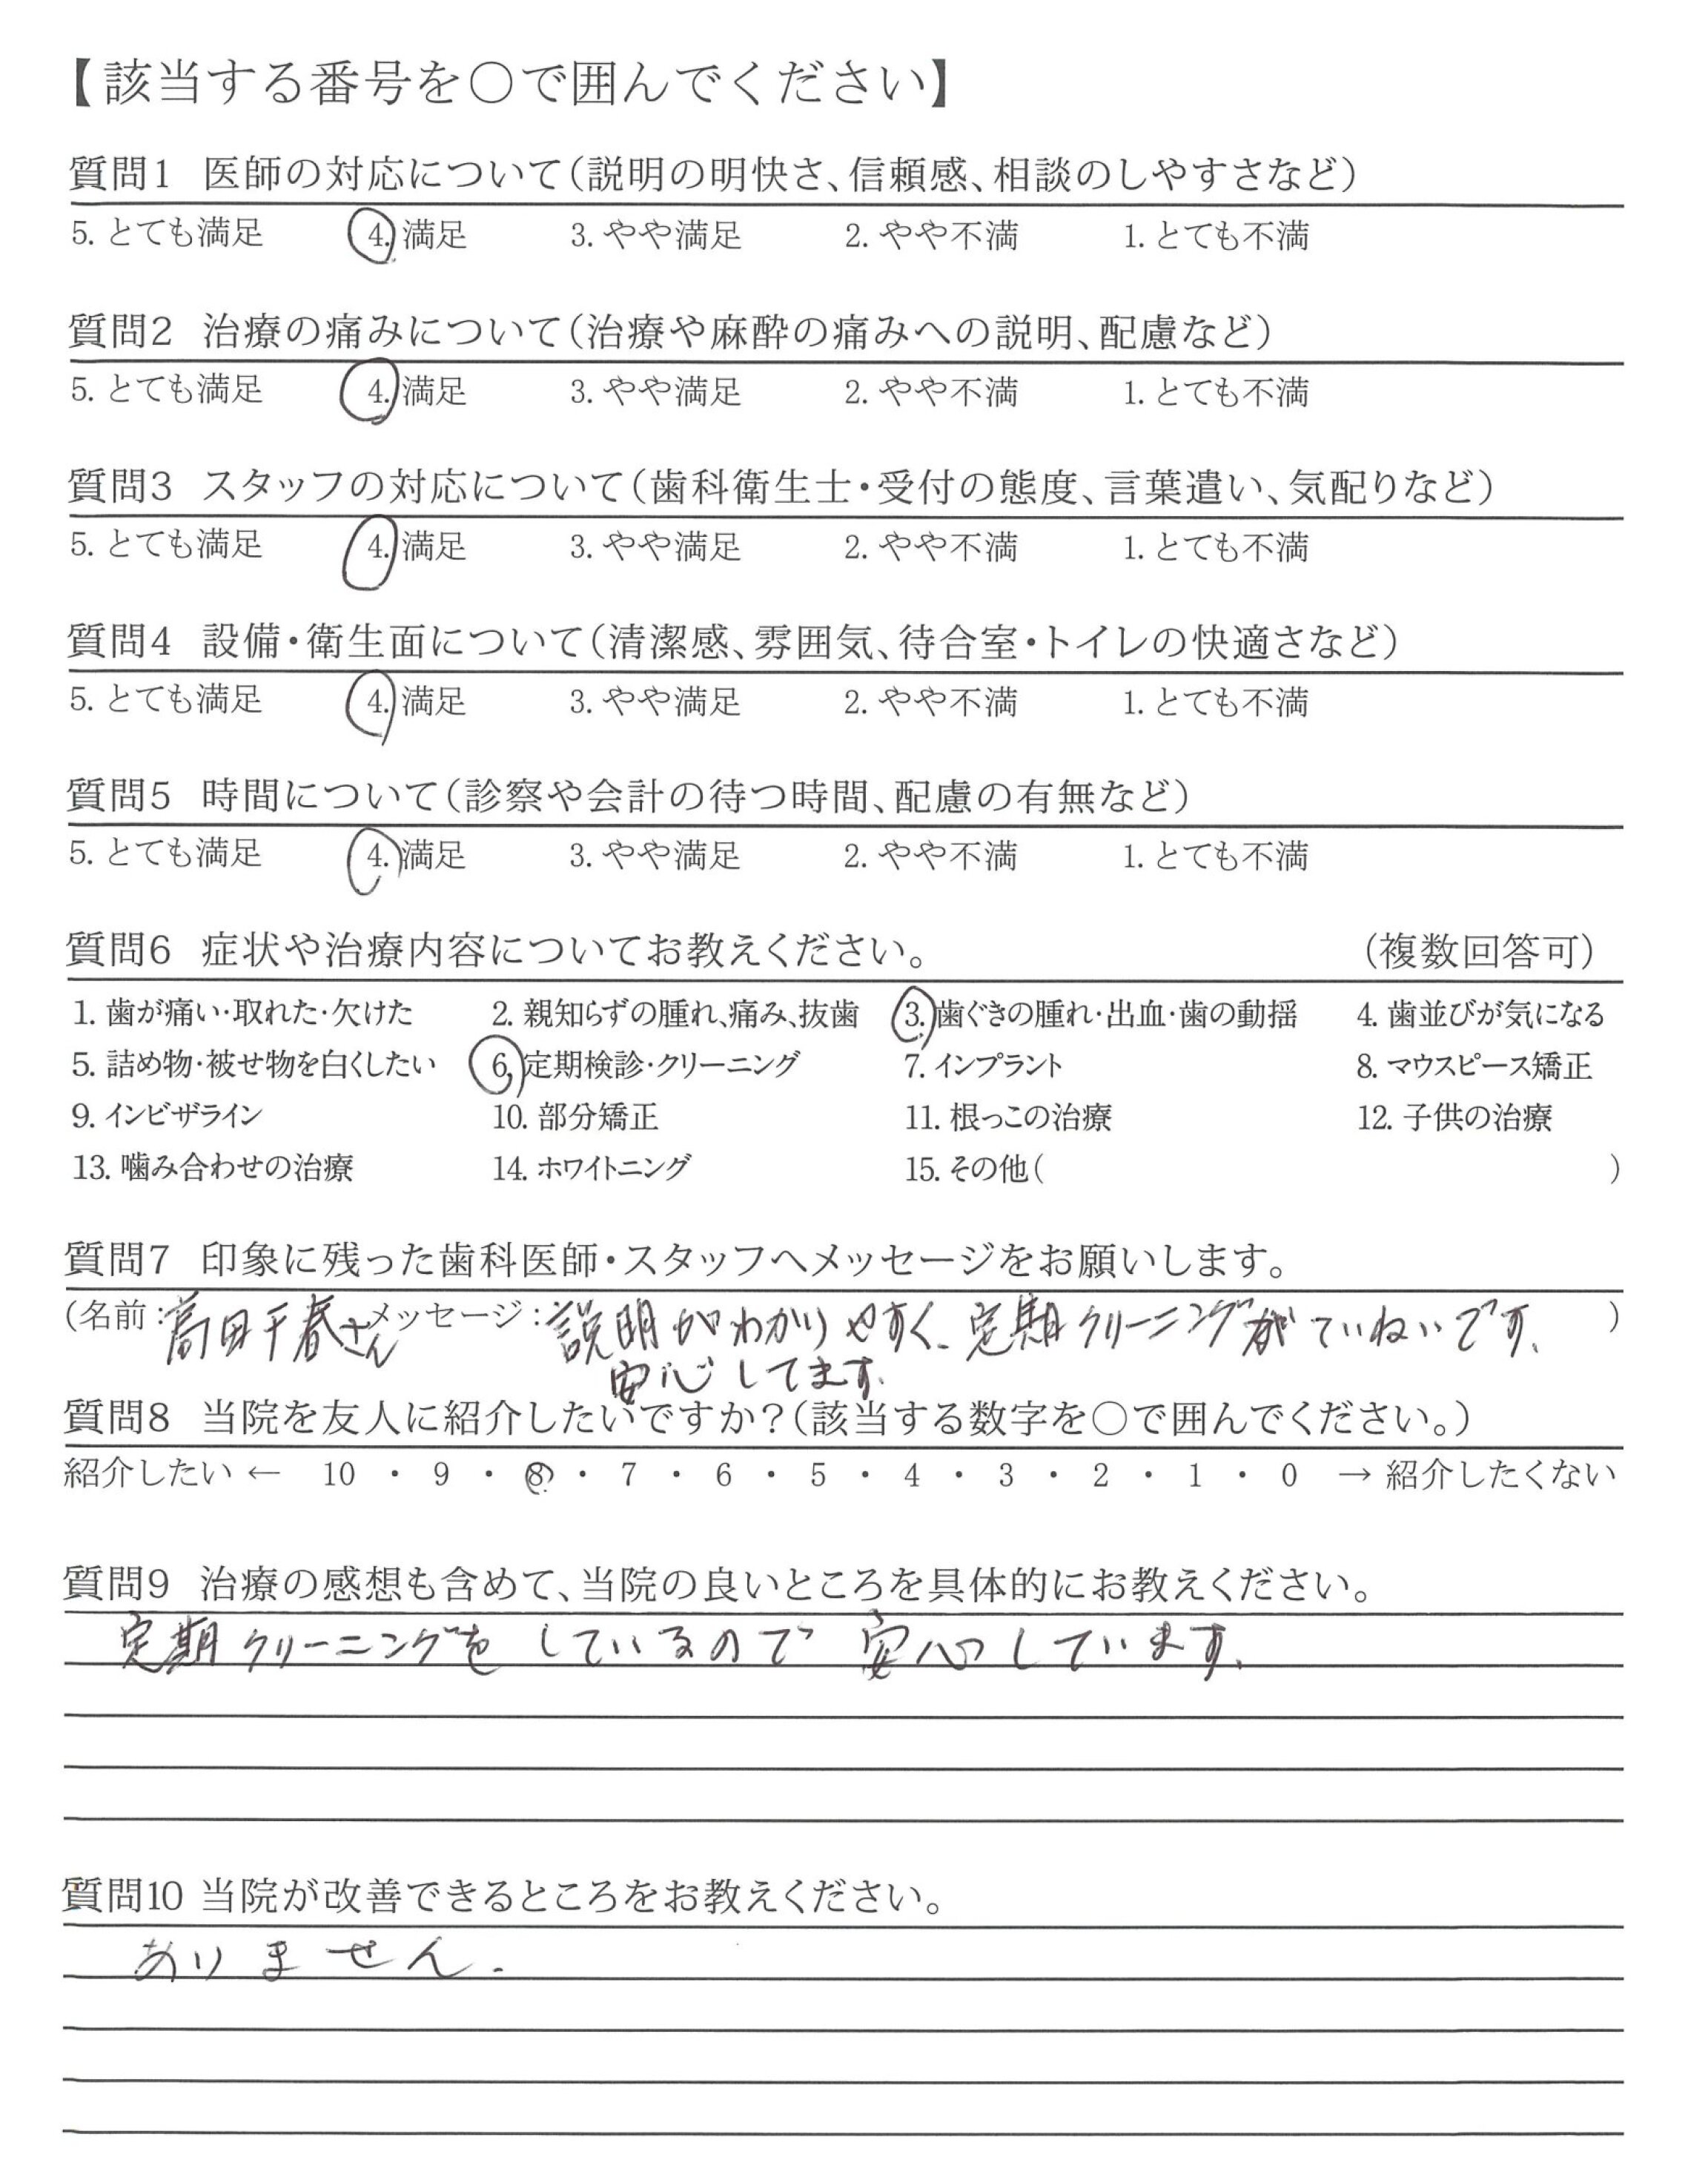 【該当する番号を〇で囲んでください】
質問1 医師の対応について(説明の明快さ、信頼感、相談のしやすさなど)
5. とても満足 4. 満足 3. やや満足 2. やや不満 1. とても不満
質問2 治療の痛みについて(治療や麻酔の痛みへの説明、配慮など)
5. とても満足 4. 満足 3. やや満足 2. やや不満 1. とても不満
質問3 スタッフの対応について(歯科衛生士・受付の態度、言葉遣い、気配りなど)
5. とても満足 4. 満足 3. やや満足 2. やや不満 1. とても不満
質問4 設備・衛生面について(清潔感、雰囲気、待合室・トイレの快適さなど)
5. とても満足 4. 満足 3. やや満足 2. やや不満 1. とても不満
質問5 時間について(診察や会計の待つ時間、配慮の有無など)
5. とても満足 4. 満足 3. やや満足 2. やや不満 1. とても不満
質問6 症状や治療内容についてお教えください。 (複数回答可)
1. 歯が痛い・取れた・欠けた 2. 親知らずの腫れ、痛み、抜歯 3. 歯ぐきの腫れ・出血・歯の動揺 4. 歯並びが気になる
5. 詰め物・被せ物を白くしたい 6. 定期検診・クリーニング 7. インプラント 8. マウスピース矯正
9. インビザライン 10. 部分矯正 11. 根っこの治療 12. 子供の治療
13. 噛み合わせの治療 14. ホワイトニング 15. その他( )
質問7 印象に残った歯科医師・スタッフへメッセージをお願いします。
(名前:高田千春さん メッセージ:説明がわかりやすく、定期クリーニングがていねいです。 )
安心してます。
質問8 当院を友人に紹介したいですか?(該当する数字を〇で囲んでください。)
紹介したい ← 10 ・ 9 ・ 8 ・ 7 ・ 6 ・ 5 ・ 4 ・ 3 ・ 2 ・ 1 ・ 0 → 紹介したくない
質問9 治療の感想も含めて、当院の良いところを具体的にお教えください。
定期クリーニングをしているので安心しています。
質問10 当院が改善できるところをお教えください。
ありません.